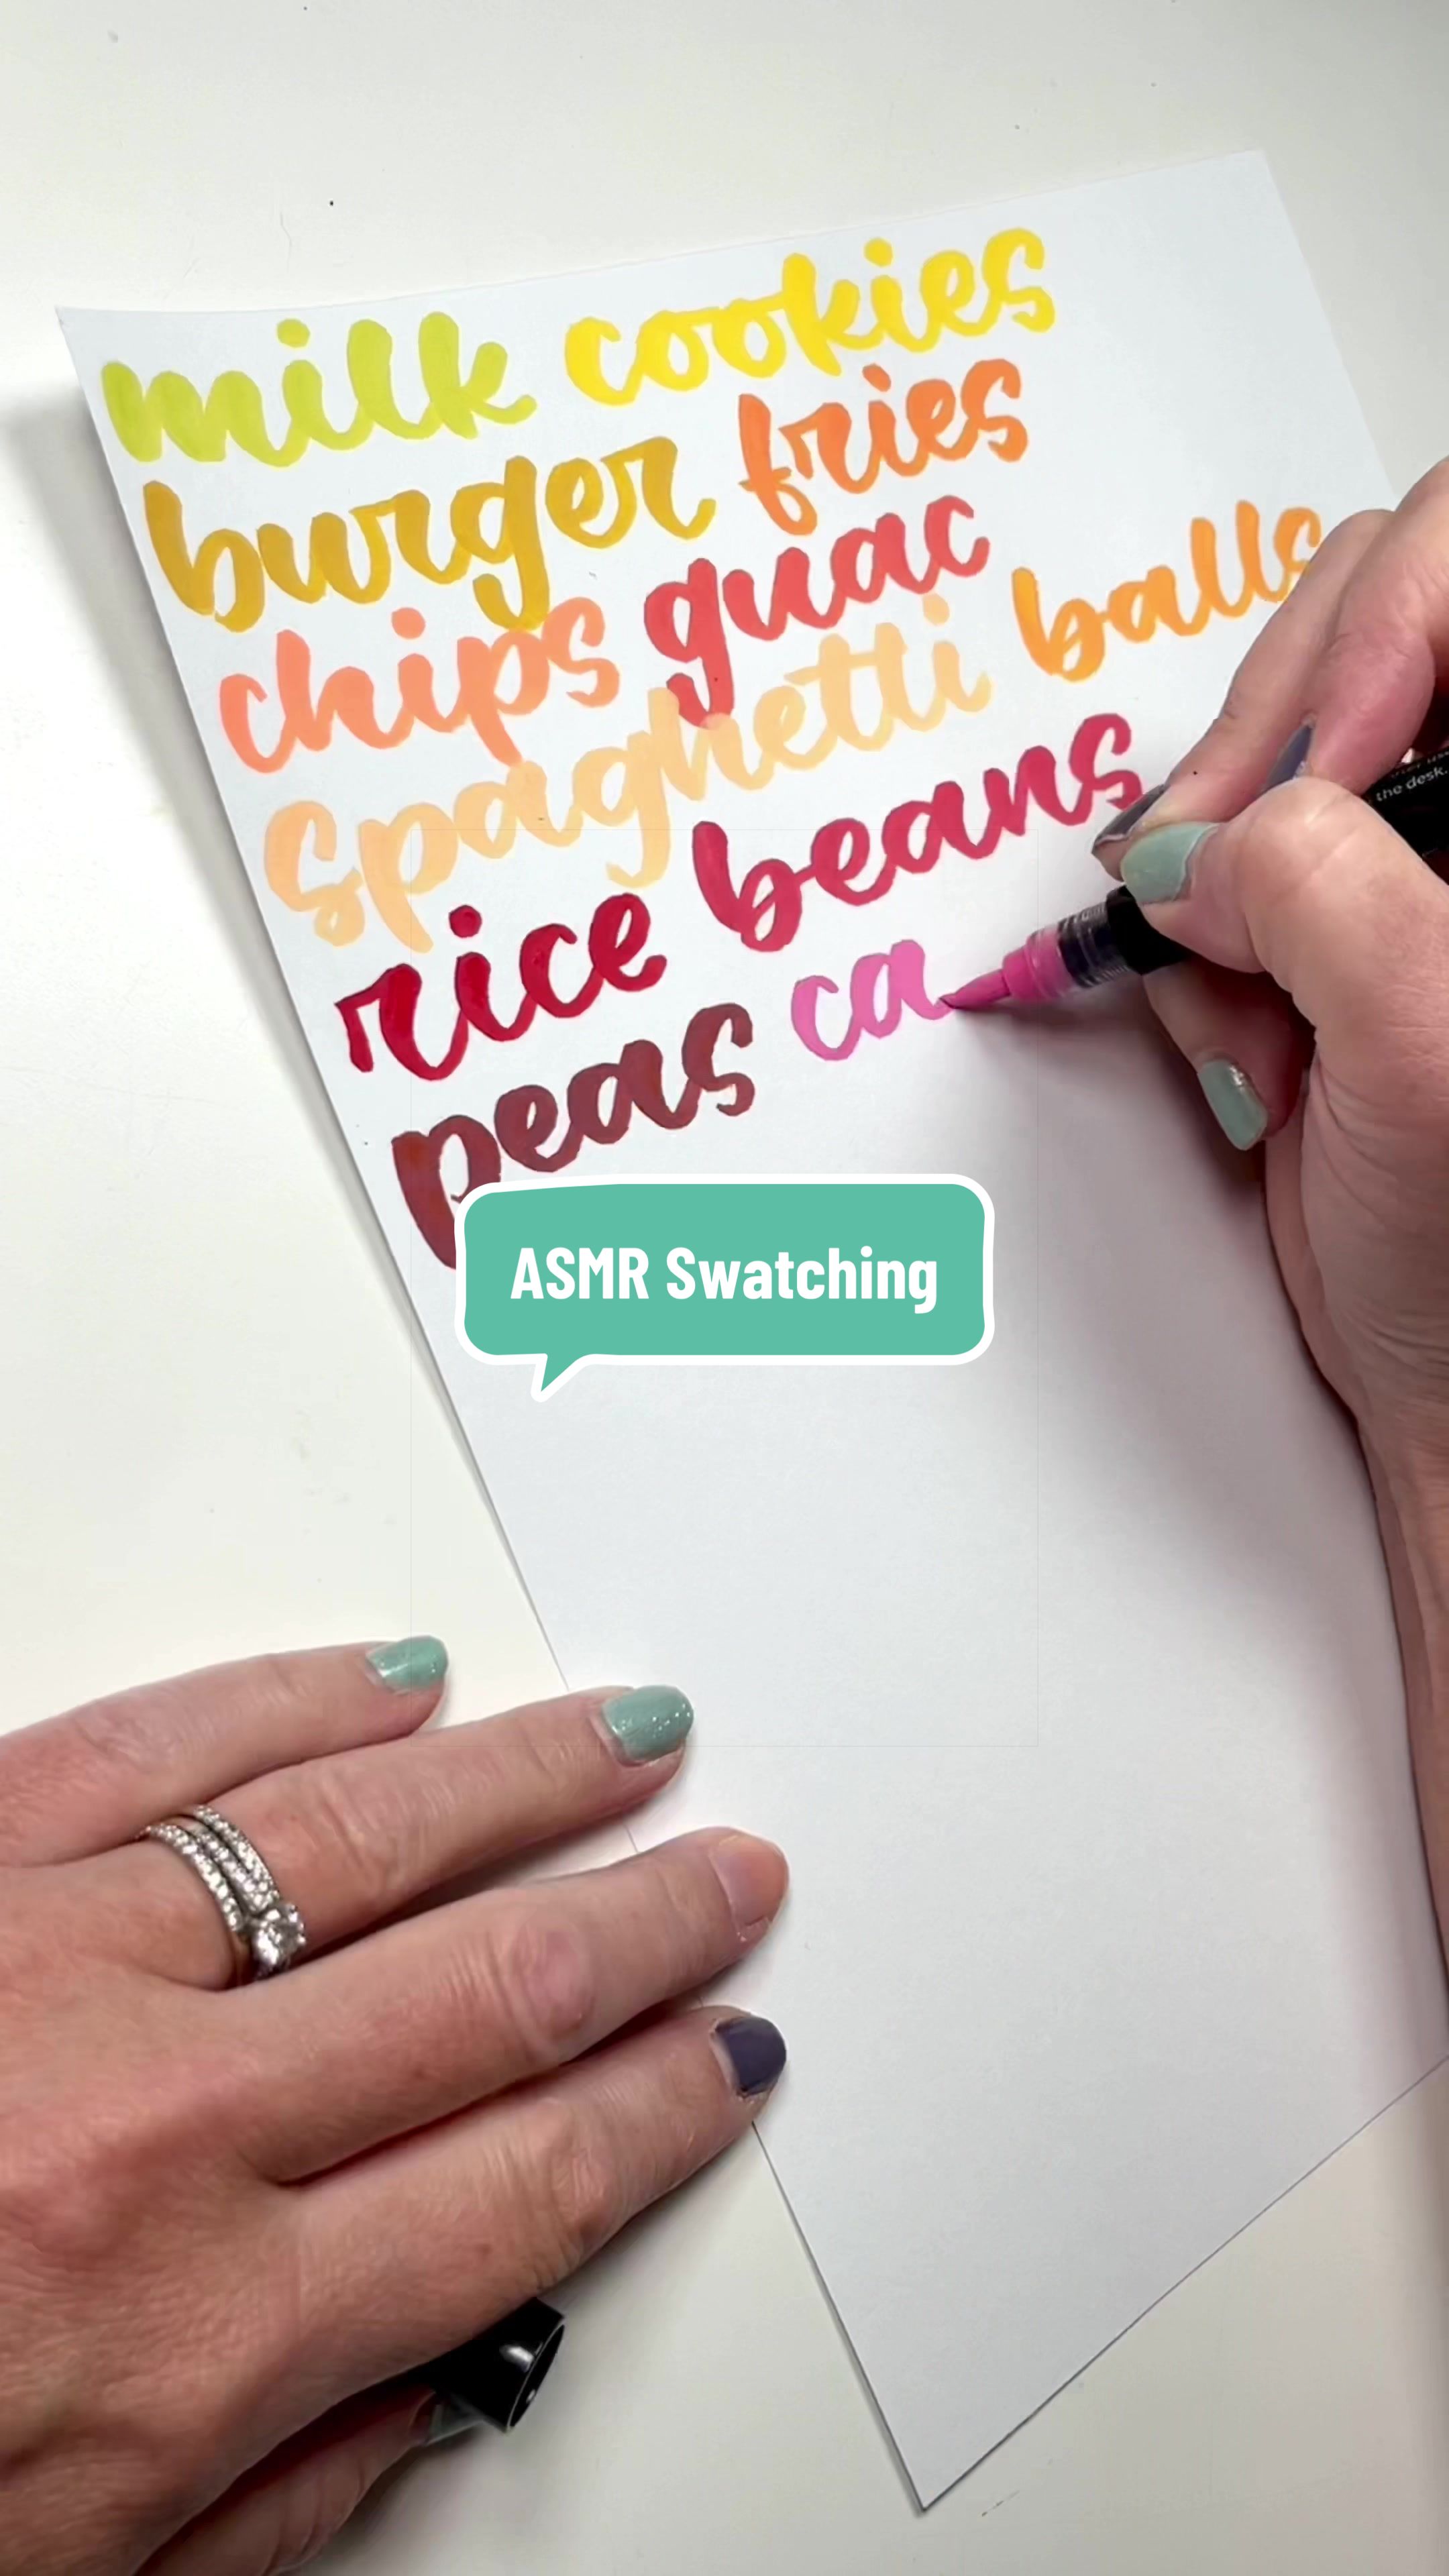 milk cookies
burger fries
chips guac
spaghetti balls
rice beans
peas ca
ASMR Swatching
the desk.